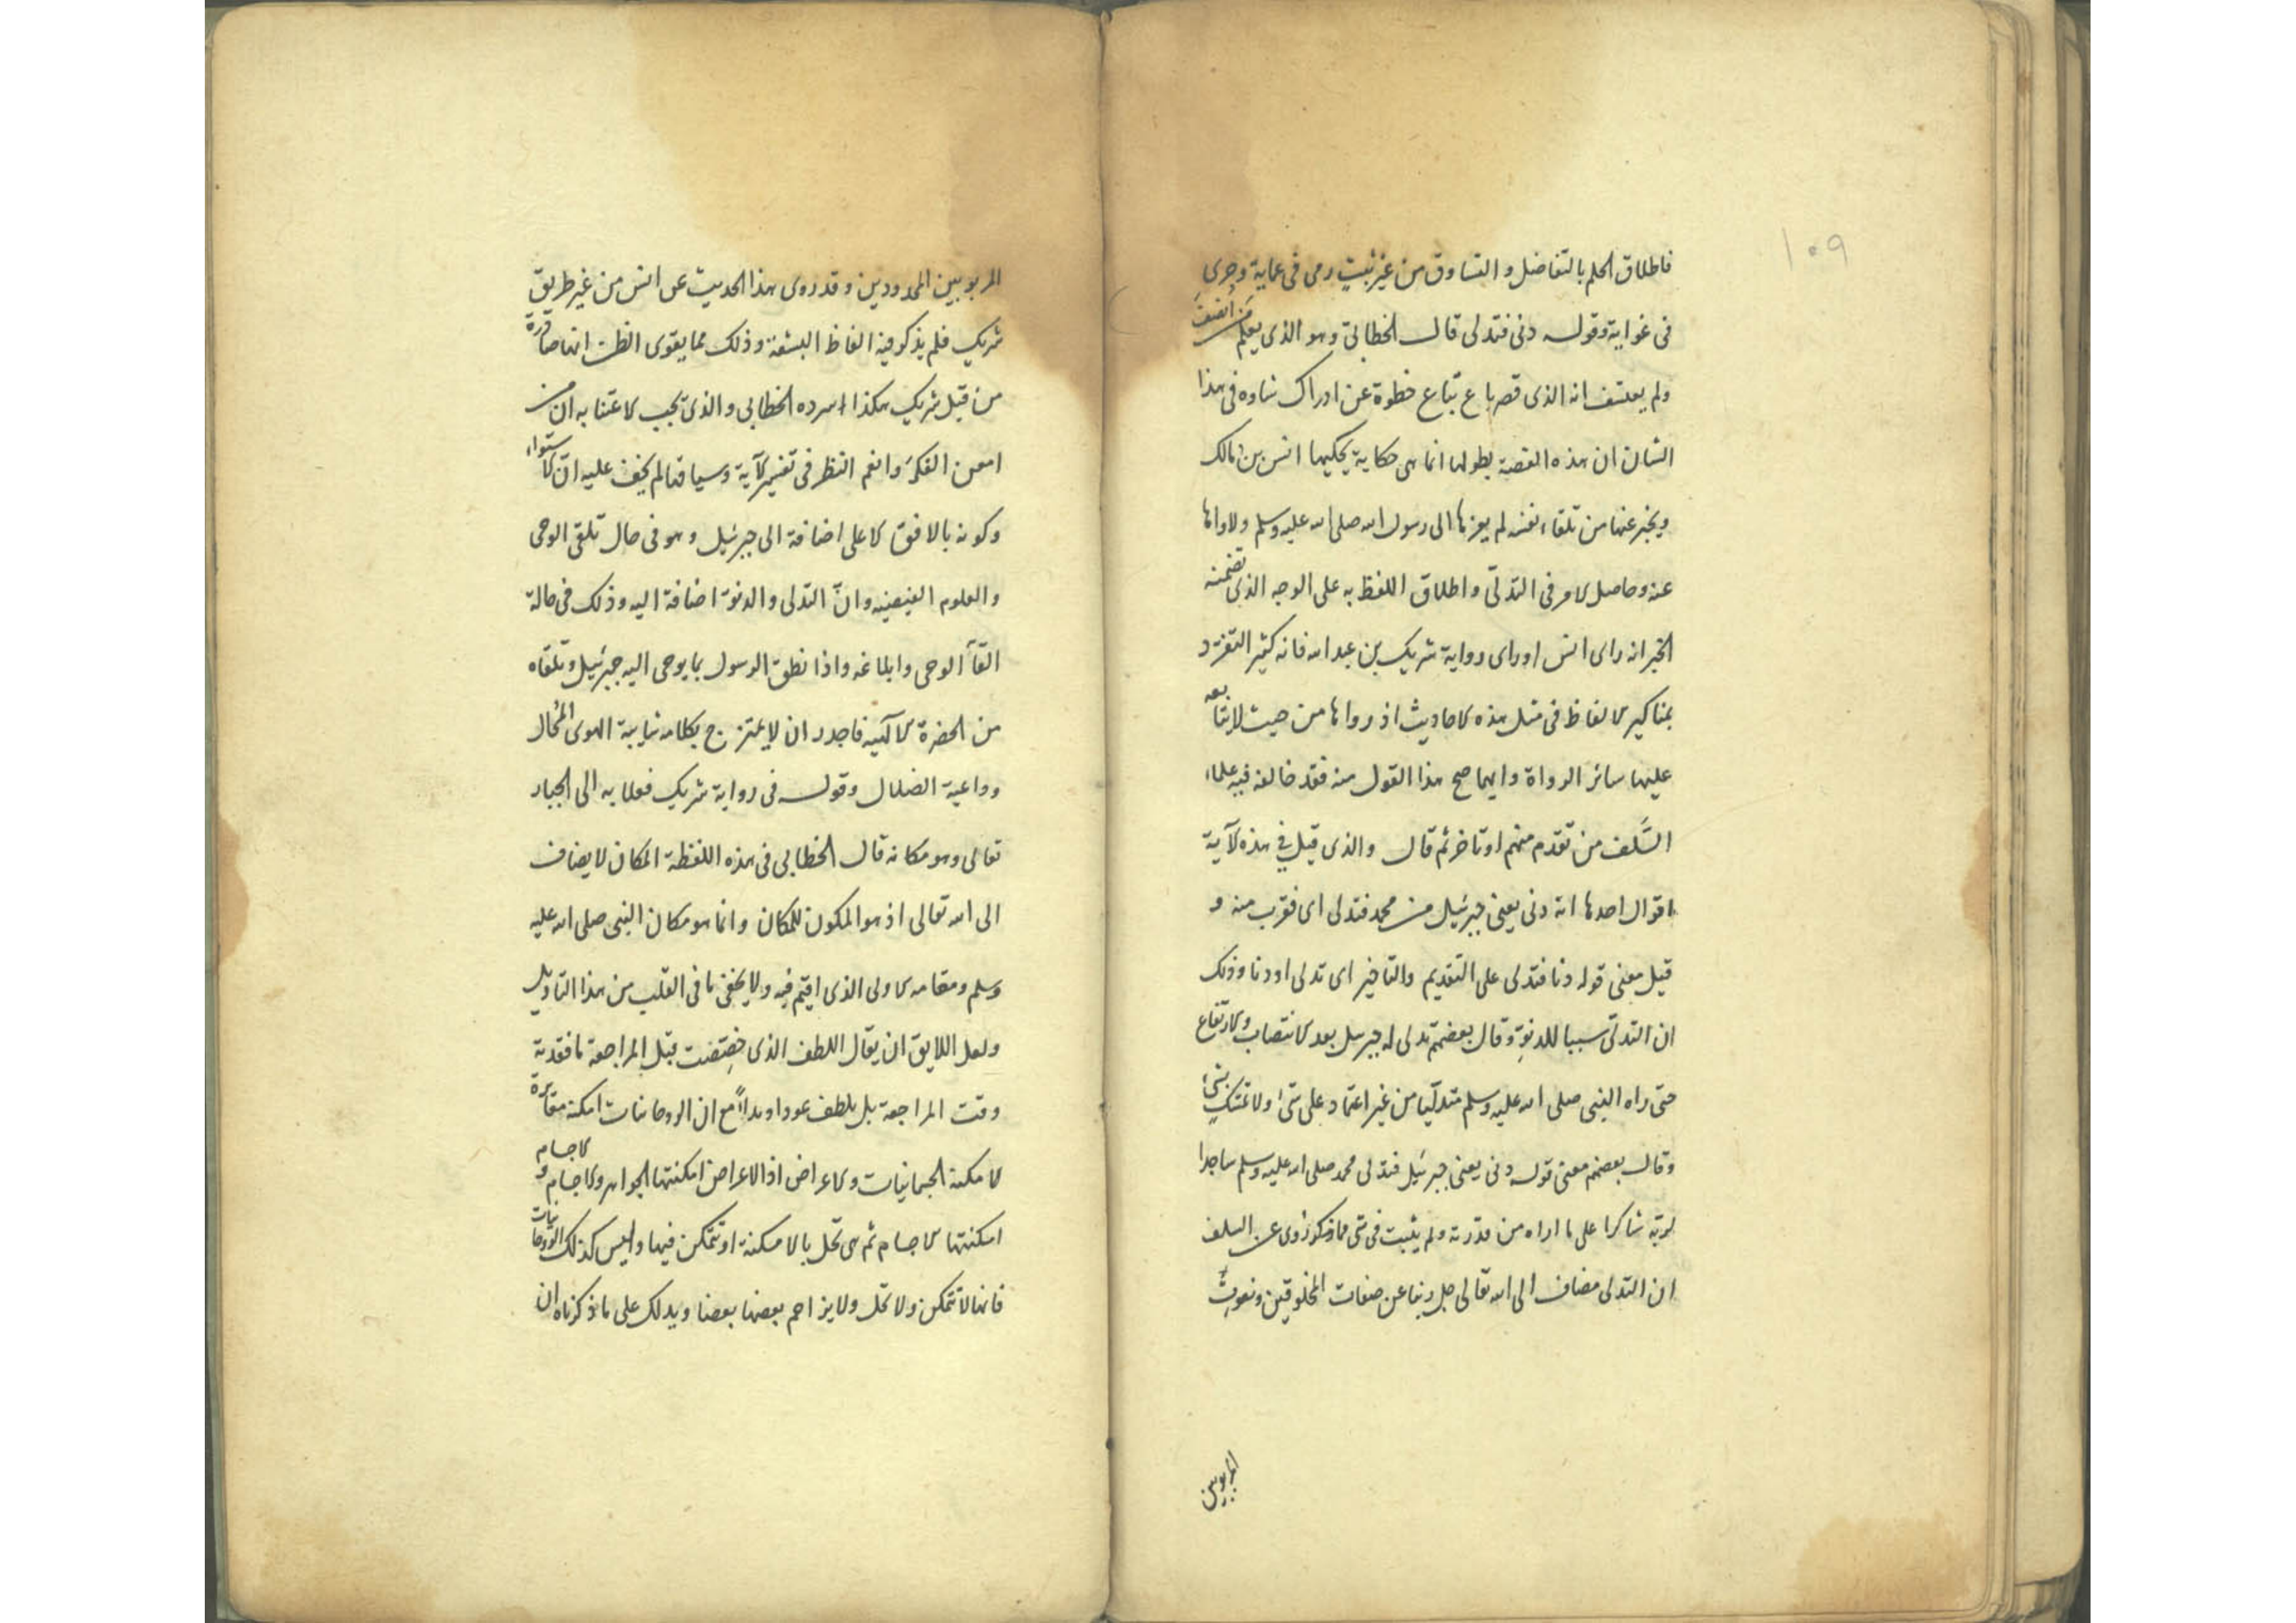 ١٠٩
فاطلاق الحلم بالتفاضل و التساوق من غير ثبتٍ رمى فى عماية وجرى
فى غواية وقوله دنى فتدلى قال الخطابى وهو الذى يعلم من انصف
ولم يعتسف انه الذى قصر باع تباع خطوة عن ادراك شاوه فى هذا
الشان ان هذه القصة بطولها انما هى حكاية يحكيها انس بن مالك
ويخبر عنها من تلقاء نفسه لم يعزها الى رسول الله صلى الله عليه وسلم ولا رواها
عنه وحاصل الامر فى التدلّى و اطلاق اللفظ به على الوجه الذى تضمنه
الخبر انه راى انس او راى رواية شريك بن عبد الله فانه كثير التفرد
بمناكير الالفاظ فى مثل هذه الاحاديث اذ رواها من حيث لا يتابعه
عليها سائر الرواة وايهما صح هذا القول منه فقد خالفه فيه علماء
السَّلف من تقدم منهم او تاخر ثم قال والذى قيل فى هذه الآية
اقوال احدها انه دنى يعنى جبرئيل من محمد فتدلى اى فقرب منه و
قيل معنى قوله دنا فتدلى على التقديم والتاخير اى تدلى اودنا وذلك
ان التدلّى سببا للدنوّ وقال بعضهم تدلى له جبرىيل بعد الانتصاب والارتفاع
حتى راه النبى صلى الله عليه وسلم متدلّيا من غير اعتماد على شئ ولا تمسّكٍ بشئ
وقال بعضهم معنى قوله دنى يعنى جبرئيل فتدلى محمد صلى الله عليه وسلم ساجدا
لربّه شاكرا على ما اراه من قدرته ولم يثبت فى شى مما ذكور روى عن السلف
ان التدلى مضاف الى الله تعالى جل ربنا عن صفات المخلوقين ونعوت
المربوبين
المربوبين المحدودين وقد روى هذا الحديث عن انس من غير طريق
شريك فلم يذكر فيه الفاظ البشعة وذلك مما يقوى الظن انها صادرة
من قبل شريك هكذا اسرده الخطابى والذى يجب الاعتنا به ان من
امعن الفكرَ وانعم النظر فى تفسير الآية وسياقها لم يخف عليه انّ الاستواء
وكونه بالافق الاعلى اضافة الى جبرئيل وهو فى حال تلقى الوحى
والعلوم الغيبيه وانّ التدلى والدنوّ اضافة اليه وذلك فى حالة
القآء الوحى وابلاغه واذا نطق الرسول بما يوحى اليه جبرئيل وتلقاه
من الحضرة الآلهيه فاجدر ان لا يمتزج بكلامه شايبة الهوى المُحال
وداعية الضلال وقوله فى رواية شريك فعلا به الى الجبار
تعالى وهو مكانه قال الخطابى فى هذه اللفظة المكان لا يضاف
الى الله تعالى اذ هو المكون للمكان وانما هو مكان النبى صلى الله عليه
وسلم ومقامه الاولى الذى اقيم فيه ولا يخفى ما فى القلب من هذا التاويل
ولعل اللايق ان يقال اللطف الذى خصّصت قبل المراجعة ما فقدته
وقت المراجعة بل بلطف عودا وبداءً مع ان الروحانيات امكنة مغايرة
لامكنة الجسمانيات والاعراض اذ الاعراض امكنتها الجواهر والاجسام و الاجسام
امكنتها الاجسام ثم هى تحل بالامكنة او تتمكن فيها وليس كذلك الروحانيات
فانها لا تتمكن ولا تحل ولا يزاحم بعضها بعضا ويدلك على ما ذكرناه ان